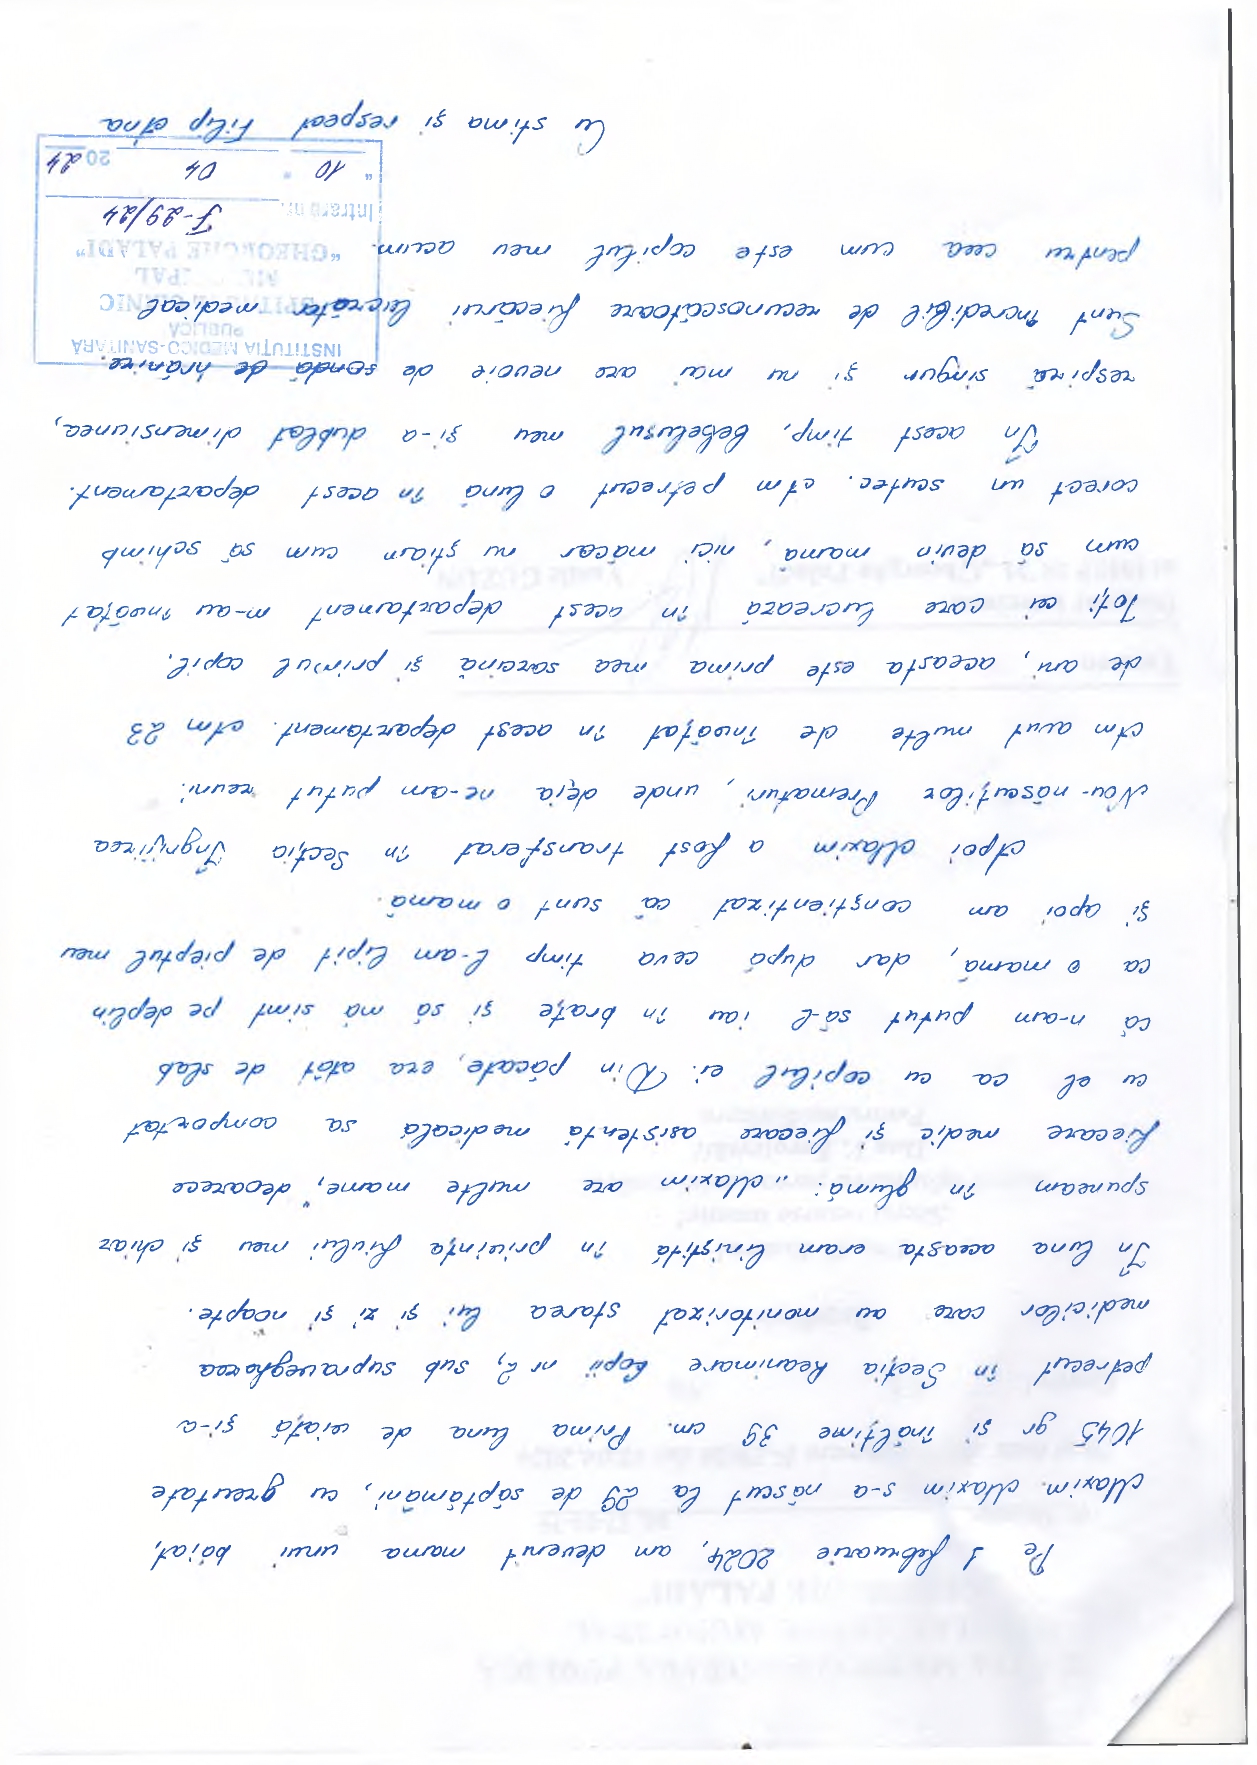 Pe 1 februarie 2024, am devenit mama unui băiat,
Maxim. Maxim s-a născut la 29 de săptămâni, cu greutate
1045 gr și înălțime 39 cm. Prima luna de viață și-a
petrecut în Secția Reanimare Copii nr 2, sub supravegherea
medicilor care au monitorizat starea lui și zi și noapte.
În luna aceasta eram liniștită în privința fiului meu și chiar
spuneam în glumă: "Maxim are multe mame," deoarece
fiecare medic și fiecare asistentă medicală sa comportat
cu el ca cu copilul ei. Din păcate, era atât de slab
că n-am putut să-l iau în brațe și să mă simt pe deplin
ca o mamă, dar după ceva timp l-am lipit de pieptul meu
și apoi am conștientizat că sunt o mamă.
Apoi Maxim a fost transferat în Secția Îngrijirea
Nou-născuților Prematuri, unde deja ne-am putut reuni.
Am avut multe de învățat în acest departament. Am 23
de ani, aceasta este prima mea sarcină și primul copil.
Toți cei care lucrează în acest departament m-au învățat
cum să devin mamă, nici măcar nu știam cum să schimb
corect un scutec. Am petrecut o lună în acest departament.
În acest timp, bebelușul meu și-a dublat dimensiunea,
respiră singur și nu mai are nevoie de sondă de hrănire.
Sunt incredibil de recunoscătoare fiecărui lucrător medical
pentru ceea cum este copilul meu acum.
INSTITUȚIA MEDICO-SANITARĂ
PUBLICĂ
"GHEORGHE PALADI"
Intrare nr. F-29/24
"10" 04 2024
Cu stima și respect Filip Ana